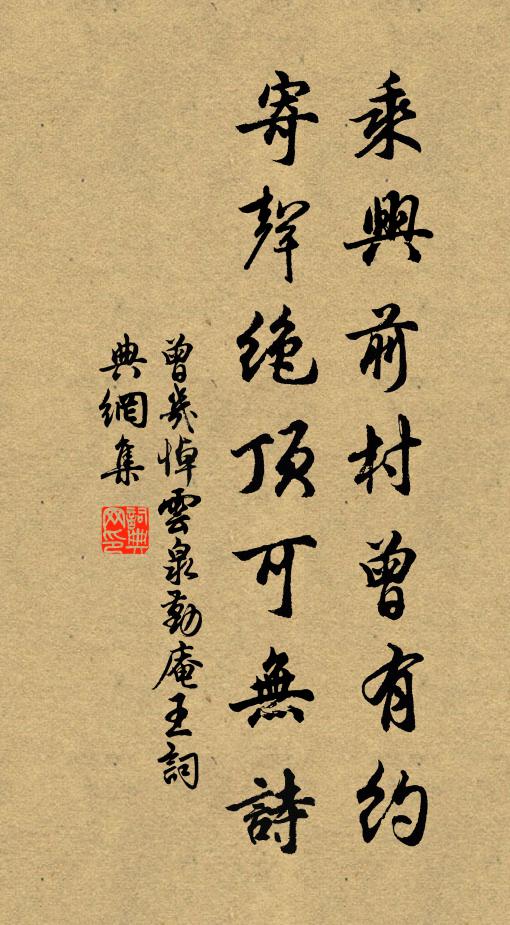 乘興前村曾有約
寄聲絕頂可無詩
曾幾悼雲泉勤庵王詞
典網集
詞典
网印